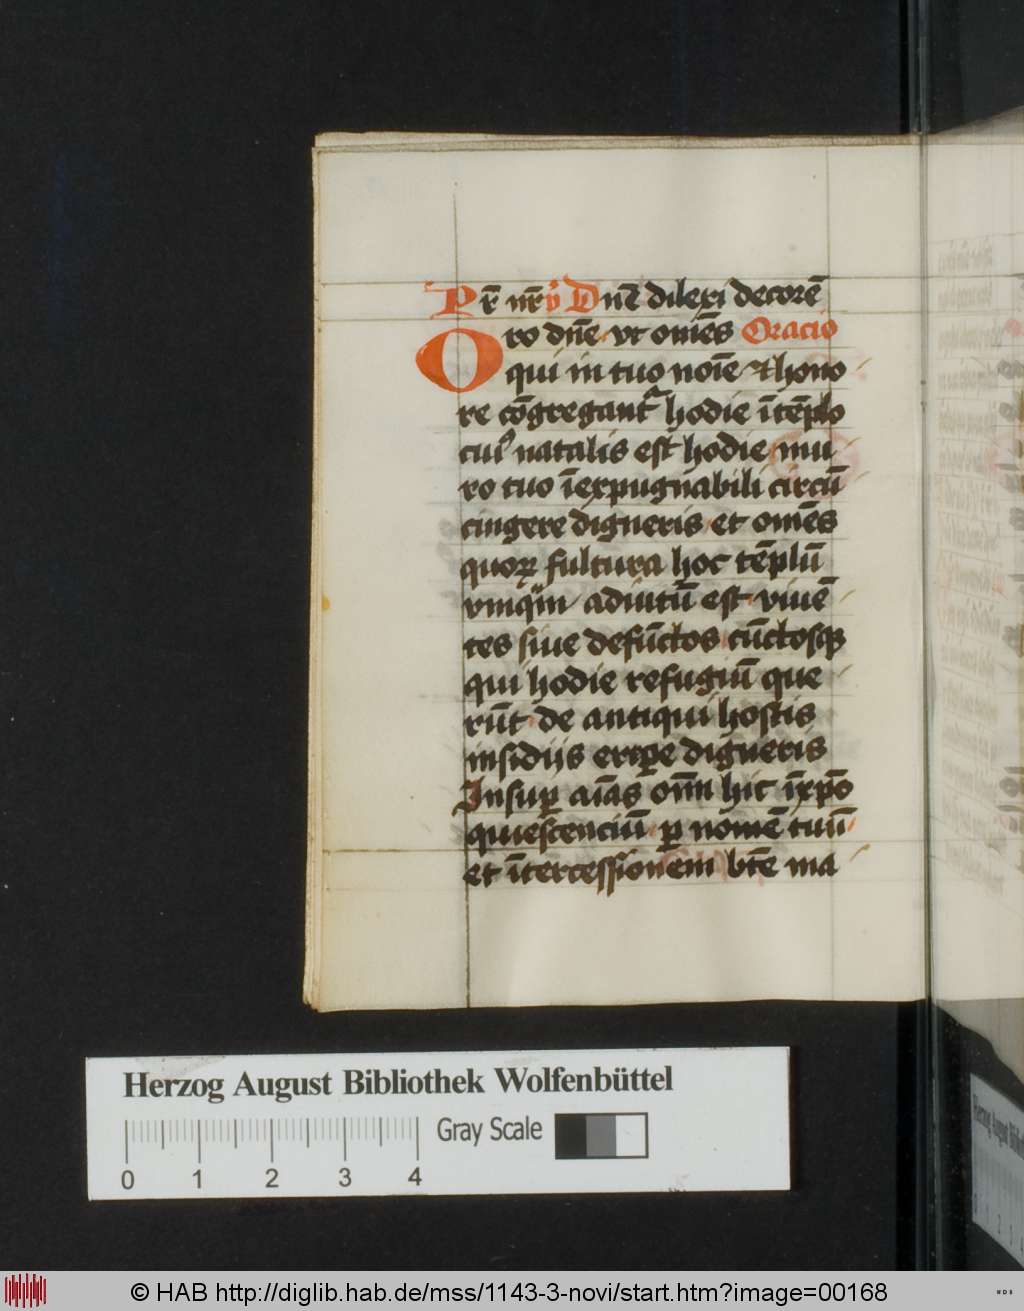 Pr̄ nr̄ v̇ Dnē dilexi decorē
Oro dn̄e vt om̄es Oracio
qui in tuo noīe ⁊ hono
re cōgregant᷑ hodie ītēplo
cui᷒ natalis est hodie mu
ro tuo īexpugnabili circū
cingere digneris et om̄es
quoꝝ fultura hoc tēplū
vnq̄m adiutū est viuē
tes siue defūctos cūctosqꝫ
qui hodie refugiū que
rūt de antiqui hostis
insidijs eripe digneris
Insuꝑ aīas om̄ hic īxp̄o
quiescenciū ꝑ nomē tuū
et ītercessionem btē ma
Herzog August Bibliothek Wolfenbüttel
Gray Scale
0 1 2 3 4
© HAB http://diglib.hab.de/mss/1143-3-novi/start.htm?image=00168